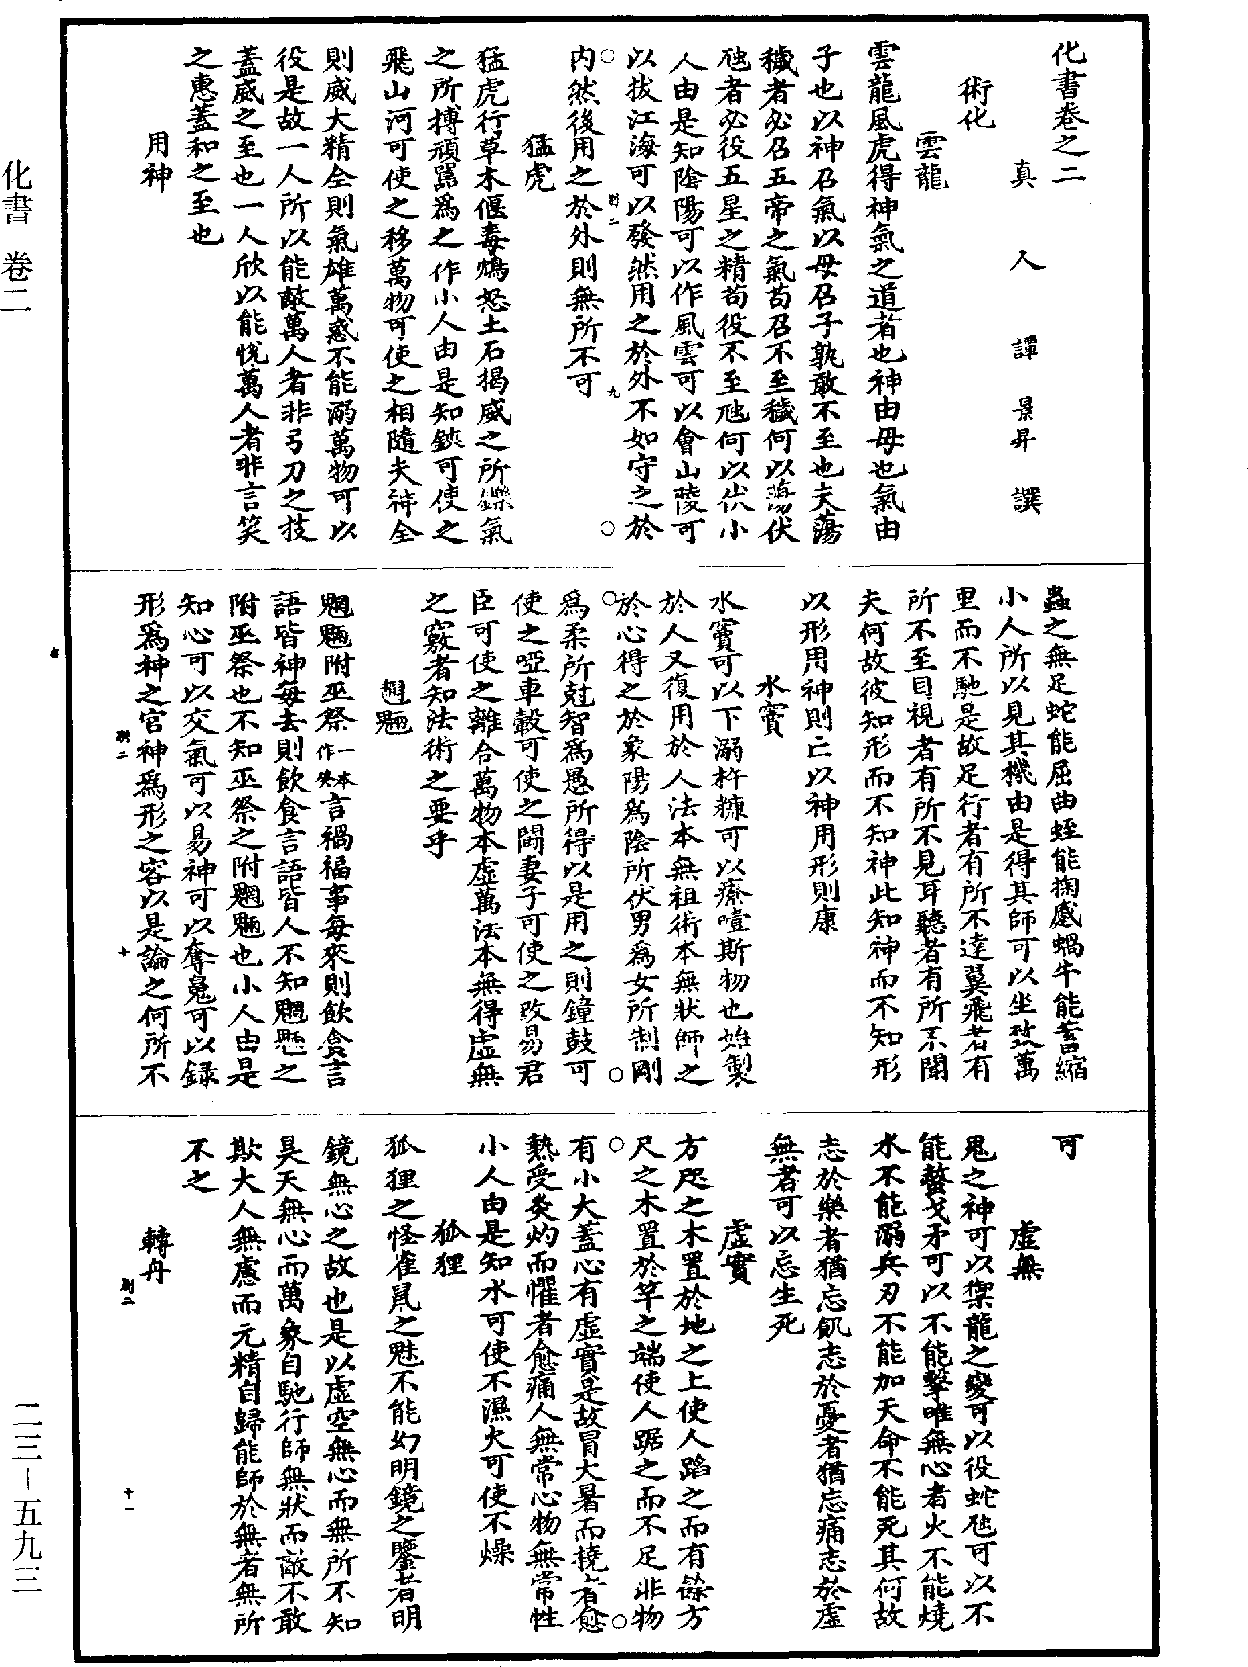 化書卷之二
真人譚景昇撰
術化
雲龍
雲龍風虎得神氣之道者也神由母也氣由
子也以神召氣以母召子孰敢不至也夫蕩
穢者必召五帝之氣苟召不至穢何以蕩伏
虺者必役五星之精苟役不至虺何以伏小
人由是知陰陽可以作風雲可以會山陵可
以拔江海可以發然用之於外不如守之於
內然後用之於外則無所不可
猛虎
猛虎行草木偃毒鴆怒土石揭威之所鑠氣
之所搏頑嚚為之作小人由是知鋏可使之
飛山河可使之移萬物可使之相隨夫神全
則威大精全則氣雄萬惑不能溺萬物可以
役是故一人所以能敵萬人者非弓刀之技
蓋威之至也一人欣以能悅萬人者非言笑
之惠蓋和之至也
用神
蟲之無足蛇能屈曲蛭能掬蹙蝸牛能蓄縮
小人所以見其機由是得其師可以坐致萬
里而不馳是故足行者有所不達翼飛者有
所不至目視者有所不見耳聽者有所不聞
夫何故彼知形而不知神此知神而不知形
以形用神則亡以神用形則康
水竇
水竇可以下溺杵糠可以療噎斯物也始製
於人又復用於人法本無祖術本無狀師之
於心得之於象陽為陰所伏男為女所制剛
為柔所尅智為愚所得以是用之則鐘鼓可
使之啞車轂可使之鬭妻子可使之改易君
臣可使之離合萬物本虛萬法本無得虛無
之竅者知法術之要乎
魍魎
魍魎附巫祭一本作與言禍福事每來則飲食言
語皆神每去則飲食言語皆人不知魍魎之
附巫祭也不知巫祭之附魍魎也小人由是
知心可以交氣可以易神可以奪魂可以錄
形為神之宮神為形之容以是論之何所不
可
虛無
鬼之神可以禦龍之變可以役蛇虺可以不
能螫戈矛可以不能擊唯無心者火不能燒
水不能溺兵刃不能加天命不能死其何故
志於樂者猶忘飢志於憂者猶忘痛志於虛
無者可以忘生死
虛實
方咫之木置於地之上使人蹈之而有餘方
尺之木置於竿之端使人踞之而不足非物
有小大蓋心有虛實是故冒大暑而撓者愈
熱受炙灼而懼者愈痛人無常心物無常性
小人由是知水可使不濕火可使不燥
狐狸
狐狸之怪雀鼠之魅不能幻明鏡之鑒者明
鏡無心之故也是以虛空無心而無所不知
昊天無心而萬象自馳行師無狀而敵不敢
欺大人無慮而元精自歸能師於無者無所
不之
轉舟
化書 卷二
二三－五九三
別二 九
別二 十
別二 十一